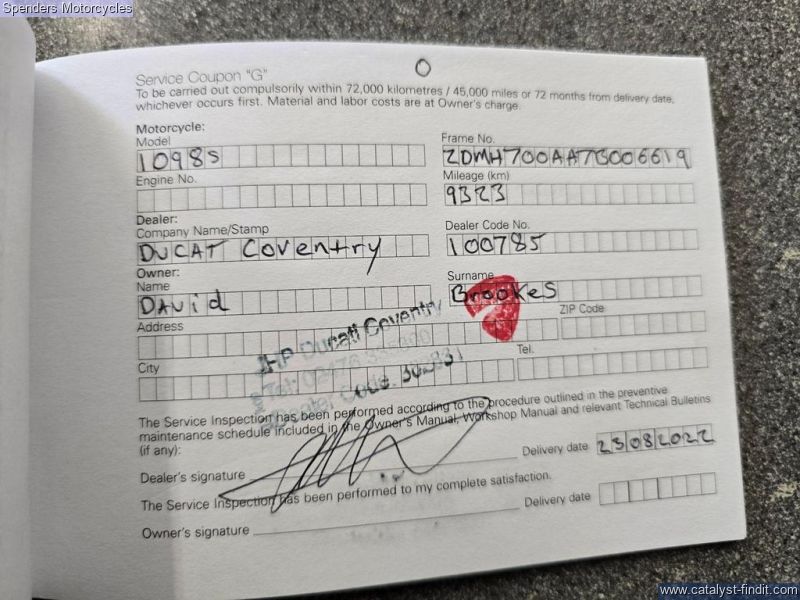 Spenders Motorcycles
Service Coupon "G"
To be carried out compulsorily within 72,000 kilometres / 45,000 miles or 72 months from delivery date,
whichever occurs first. Material and labor costs are at Owner's charge.
Motorcycle:
Model
1098s
Frame No.
ZDMH700AA7B006619
Engine No.
Mileage (km)
9323
Dealer:
Company Name/Stamp
DUCAT Coventry
Dealer Code No.
100785
Owner:
Name
David
Surname
Brookes
Address
ZIP Code
City
Tel.
JHP Ducati Coventry
Tel:
Dealer Code:
The Service Inspection has been performed according to the procedure outlined in the preventive
maintenance schedule included in the Owner's Manual, Workshop Manual and relevant Technical Bulletins
(if any):
Dealer's signature
Delivery date 23082022
The Service Inspection has been performed to my complete satisfaction.
Owner's signature
Delivery date
www.catalyst-findit.com